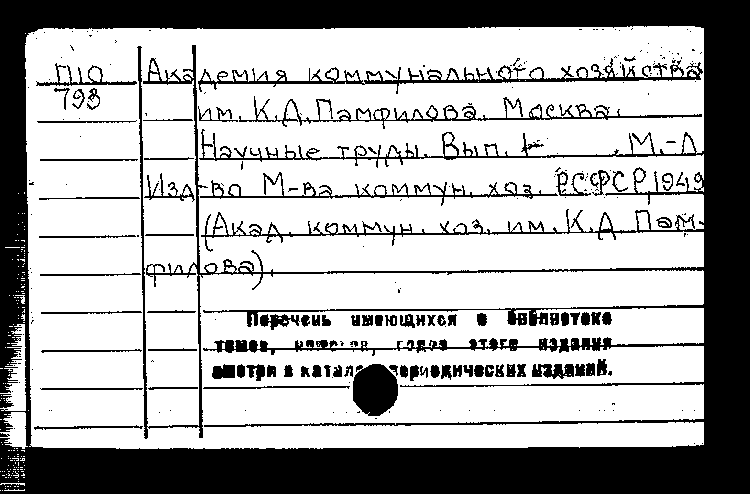 П10 Академия коммунального хозяйства
793 им. К.Д. Памфилова. Москва.
Научные труды. Вып. 1- . М.-Л.
Изд-во М-ва коммун. хоз. РСФСР, 1949
(Акад. коммун. хоз. им. К.Д. Пам-
филова).
Перечень имеющихся в библиотеке
томов, номеров, годов этого издания
смотри в каталоге периодических изданий.